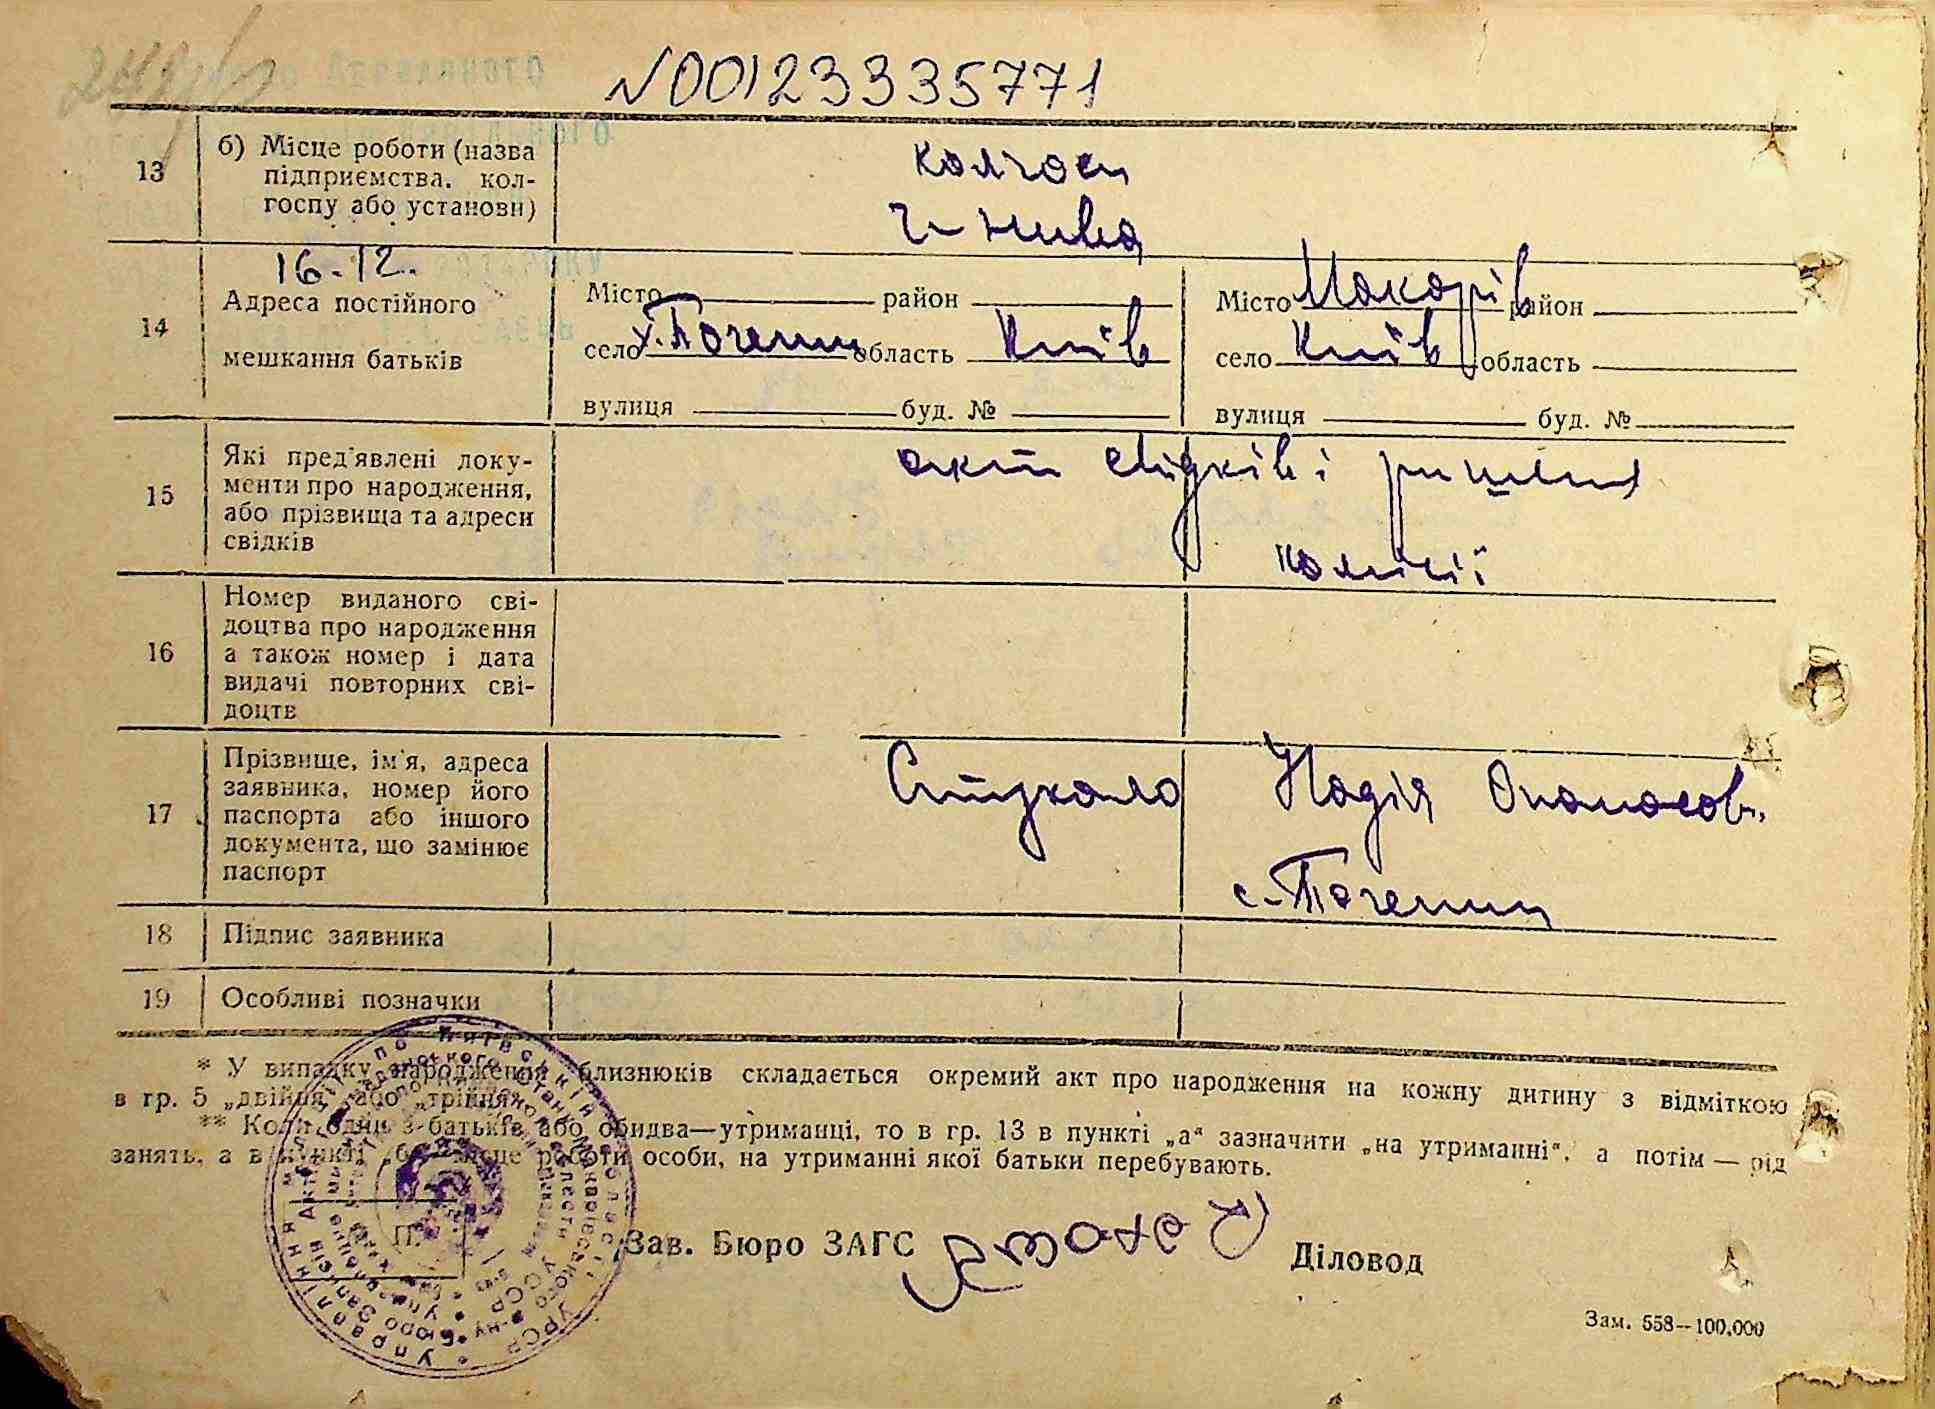 N00123335771
13
б) Місце роботи (назва
підприємства, кол-
госпу або установи)
колгосп
Ч-нива
16-12.
14
Адреса постійного
мешкання батьків
Місто район
село х. Почепин область Київ
вулиця буд. №
Місто Макарів район
село Київ область
вулиця буд. №
15
Які пред'явлені доку-
менти про народження,
або прізвища та адреси
свідків
акт свідків і ришення
комісії
16
Номер виданого сві-
доцтва про народження
а також номер і дата
видачі повторних сві-
доцтв
17
Прізвище, ім'я, адреса
заявника, номер його
паспорта або іншого
документа, що замінює
паспорт
Стукало Надія Опанасов.
с. Почепин
18
Підпис заявника
19
Особливі позначки
* У випадку народження близнюків складається окремий акт про народження на кожну дитину з відміткою
в гр. 5 „двійня" або „трійня".
** Коли один з батьків або обидва—утриманці, то в гр. 13 в пункті „а" зазначити „на утриманні", а потім — рід
занять, а в пункті „б" місце роботи особи, на утриманні якої батьки перебувають.
П.
Зав. Бюро ЗАГС
Діловод
Зам. 558—100.000